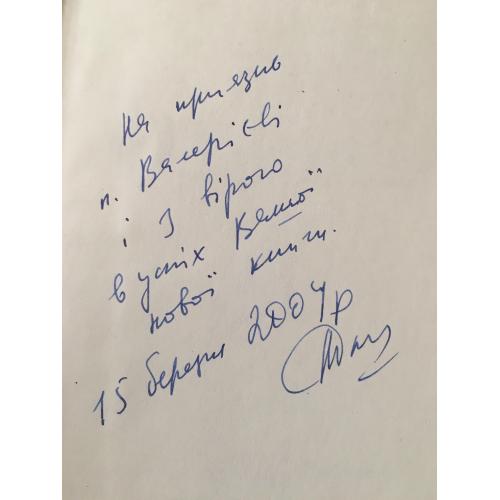 на приязнь
п. Валерієві
і з вірою
в успіх Вашої
нової книги.
15 березня 2004 р